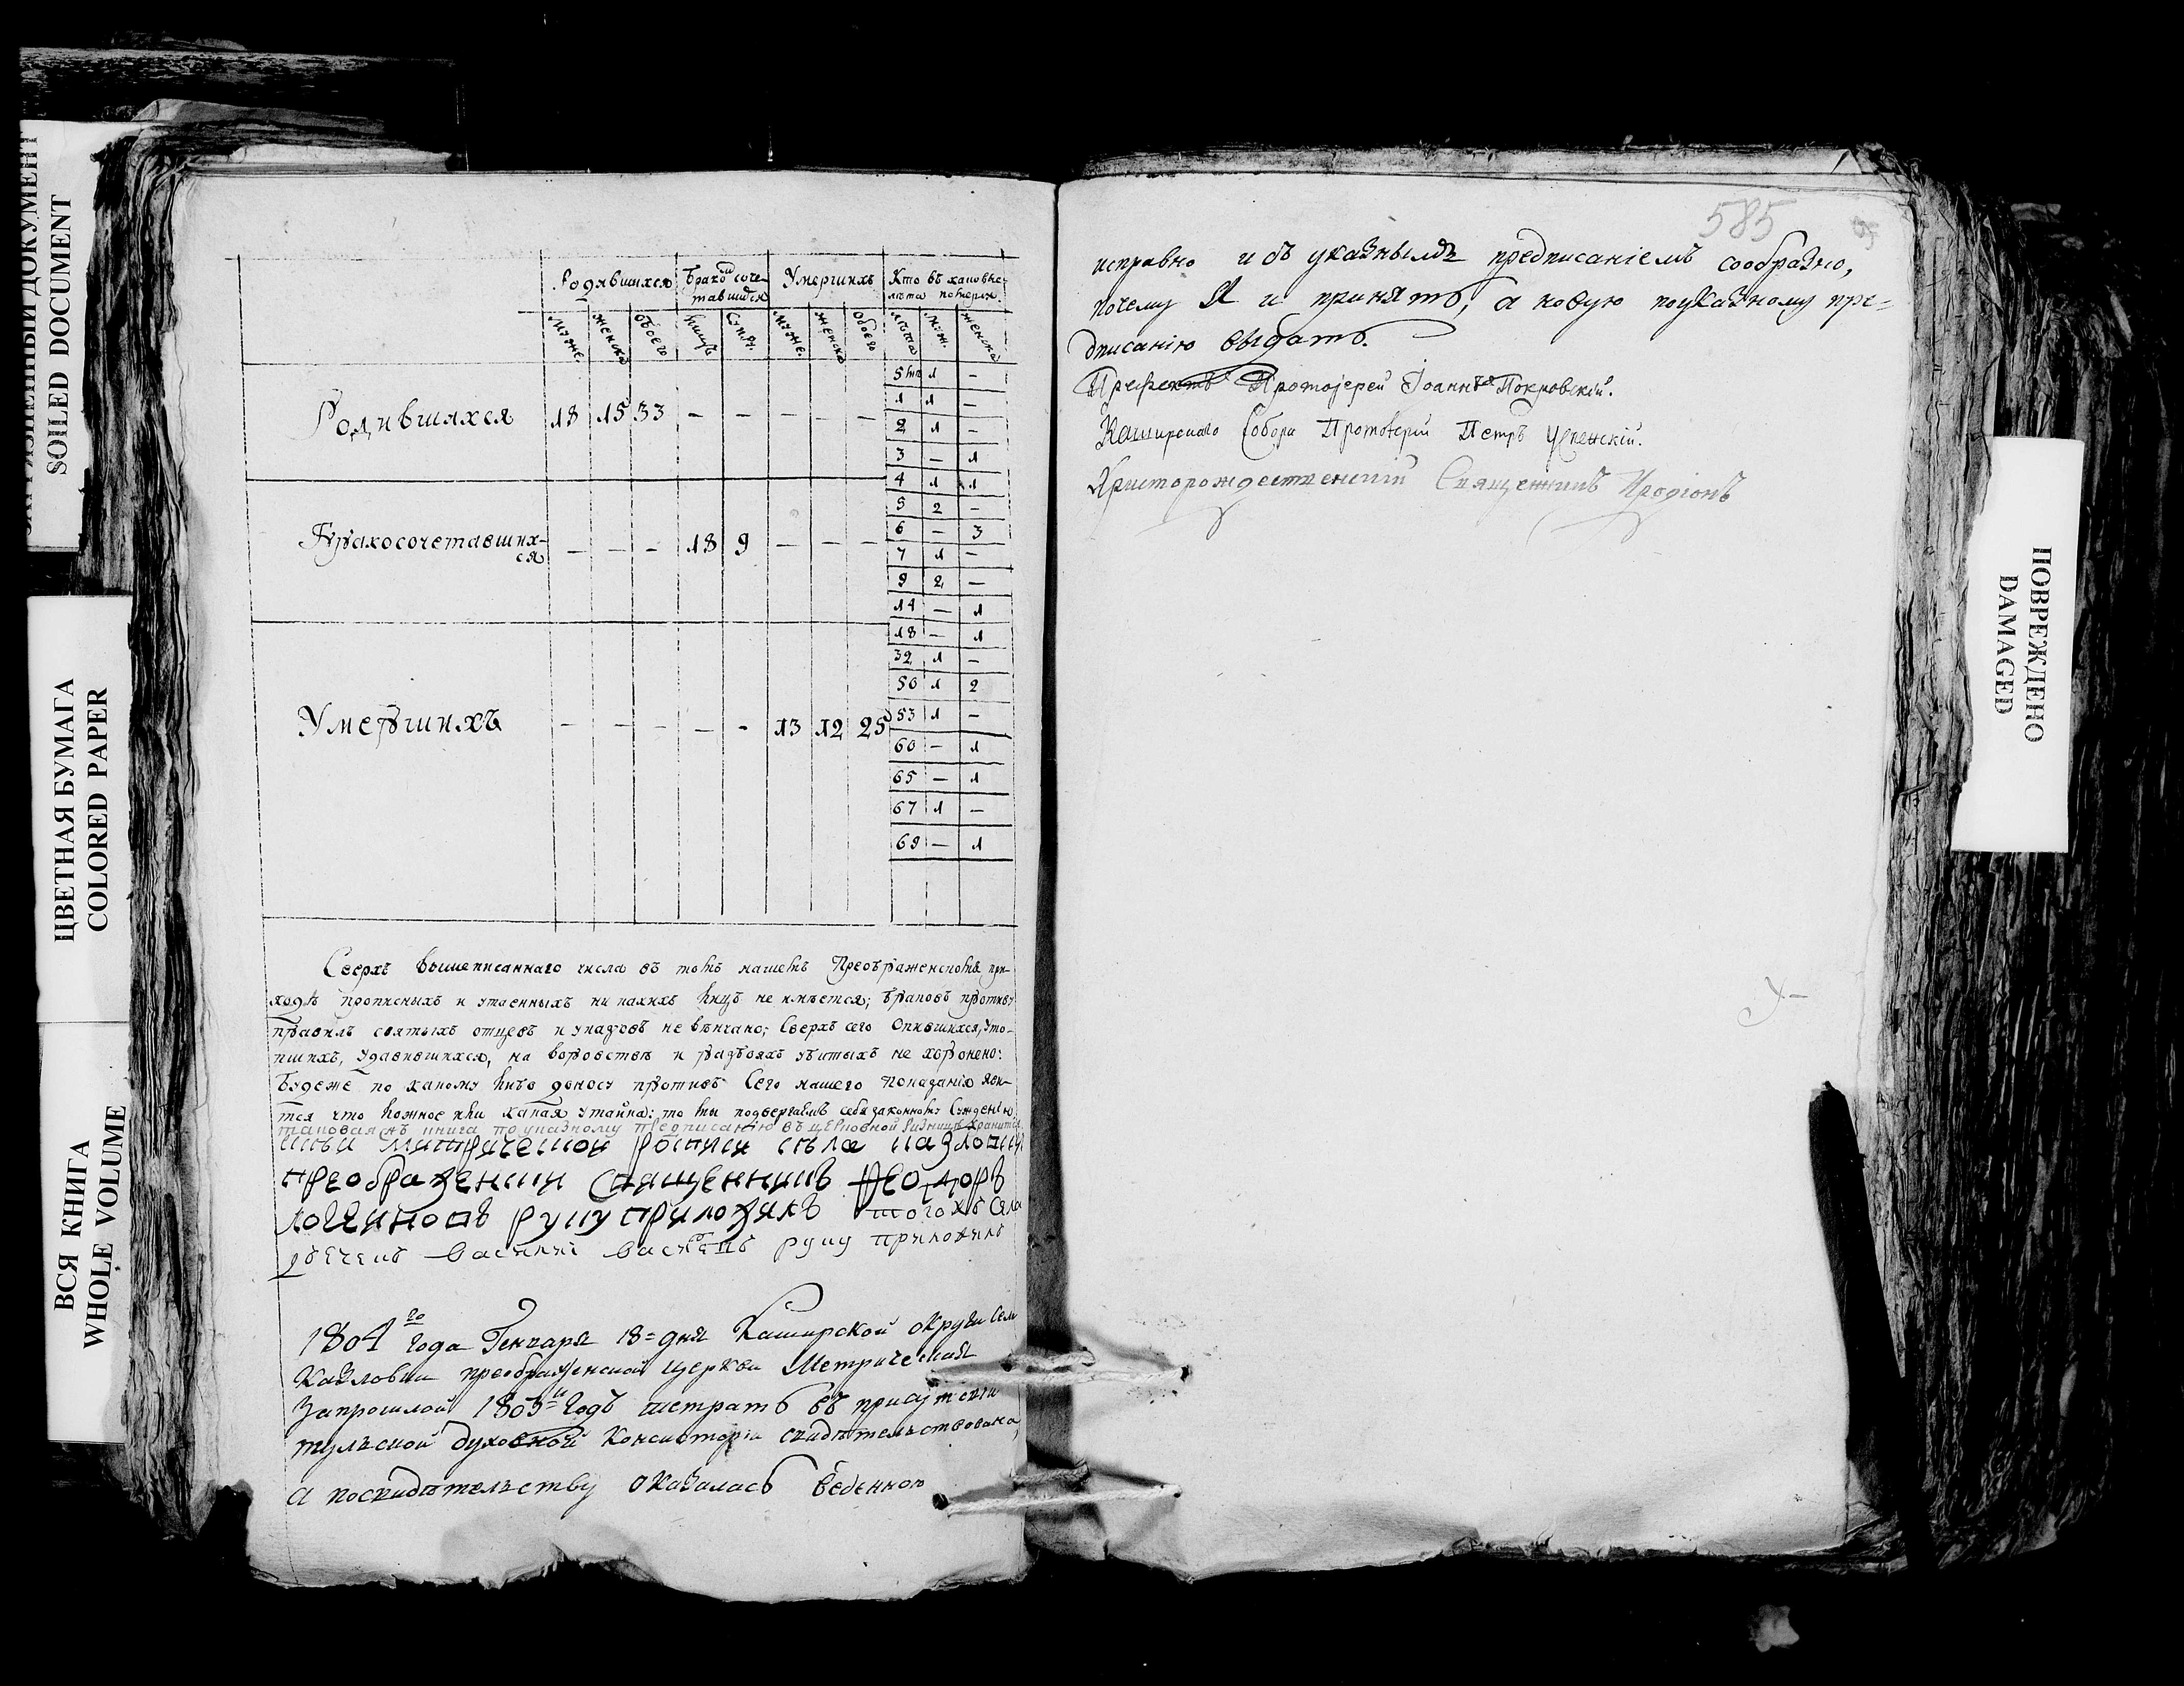 ЗАГРЯЗНЕННЫЙ ДОКУМЕНТ
SOILED DOCUMENT
ЦВЕТНАЯ БУМАГА
COLORED PAPER
ВСЯ КНИГА
WHOLE VOLUME
Родившихся Умершихъ Кто въ
Мужс. женска обоего лицъ Мужс. женска обоего лѣта муж. женска
5 1 –
1 1 –
Родившихся 18 15 33 – – – – – 2 1 –
3 – 1
4 1 1
5 2 –
Бракосочетавших- – – – 18 9 – – – 6 – 3
ся 7 1 –
9 2 –
14 – 1
18 – 1
32 1 –
50 1 2
Умершихъ – – – – – 13 12 25 53 1 –
60 – 1
65 – 1
67 1 –
69 – 1
Сверхъ вышеписаннаго числа въ томъ нашемъ Преображенскомъ при-
ходѣ прописныхъ и утаенныхъ ни какихъ лицъ не имѣется; браковъ противу
правилъ святыхъ отцевъ и указовъ не вѣнчано; Сверхъ сего Опившихся, уто-
пшихъ, удавившихся, на воровствѣ и разбояхъ убитыхъ не хоронено:
Будеже по какому либо доносу противъ Сего нашего показанія яви-
тся что ложное или какая утайка: то мы подвергаемъ себя законному Сужденію
таковая книга по указному предписанию въ церковной ризницѣ хранится
преображенский священникъ Феодоръ
руку приложилъ того жъ села
василий руку приложилъ
1804го года Генваря 18= дня Каширской округи села
Козловки преображенской церкви Метрическая
за прошлой 1803й годъ тетрать въ присутствіи
тульской духовной консисторіи свидѣтельствована,
а посвидѣтельству оказалась веденною
585
исправно и съ указнымъ предписаніемъ сообразно,
почему Я и принять, а новую поуказному пре-
дписанію выдать.
Префектъ Протоіерей Іоаннъ Покровскій.
Каширскаго Собора Протоіерей Петръ Успенскій.
Христорождественский Священникъ Иродіонъ
ПОВРЕЖДЕНО
DAMAGED